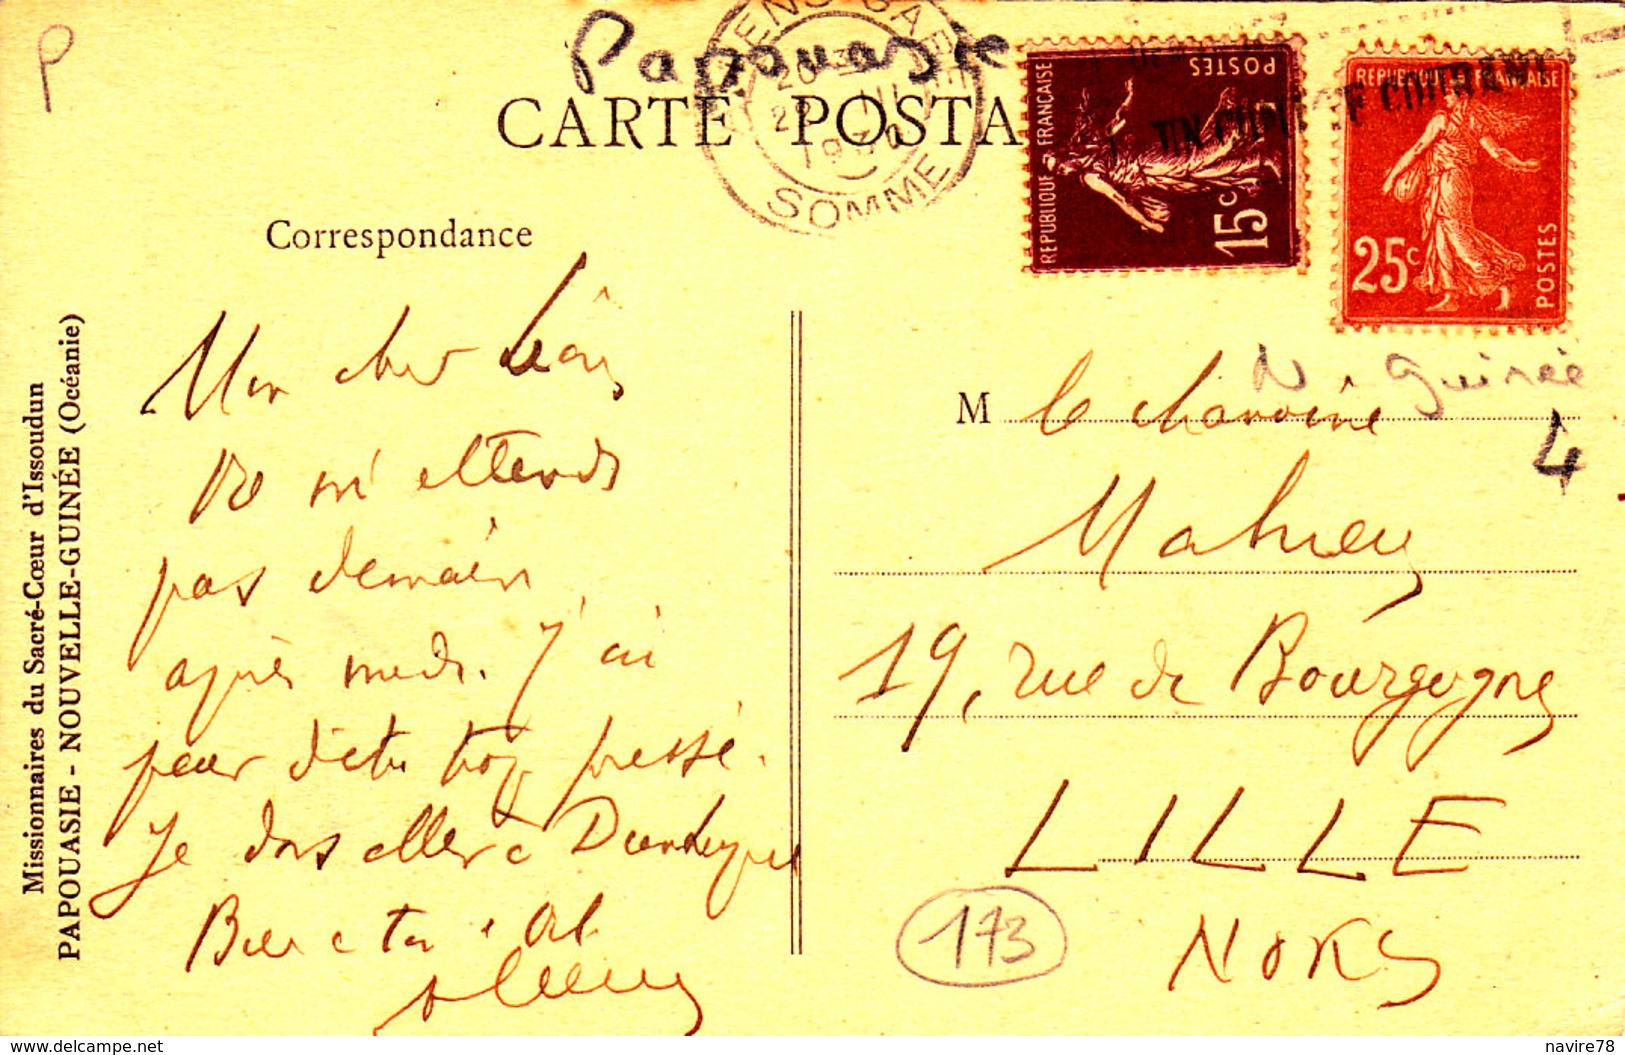 P
Papouasie
CARTE POSTA
GARE
20
1930
SOMME
REPUBLIQUE FRANÇAISE
POSTES
15c
REPUBLIQUE FRANÇAISE
POSTES
25c
COURANT
Correspondance
Missionnaires du Sacré-Cœur d'Issoudun
PAPOUASIE - NOUVELLE-GUINÉE (Océanie)
Mon cher Léon
Ne m'attends
pas demain
après midi. J'ai
peur d'être trop pressé.
Je dois aller à Dunkerque
Bien à toi
N. Guinée
4
M le chanoine
Mahieu
19, rue de Bourgogne
LILLE
NORD
173
www.delcampe.net
navire78